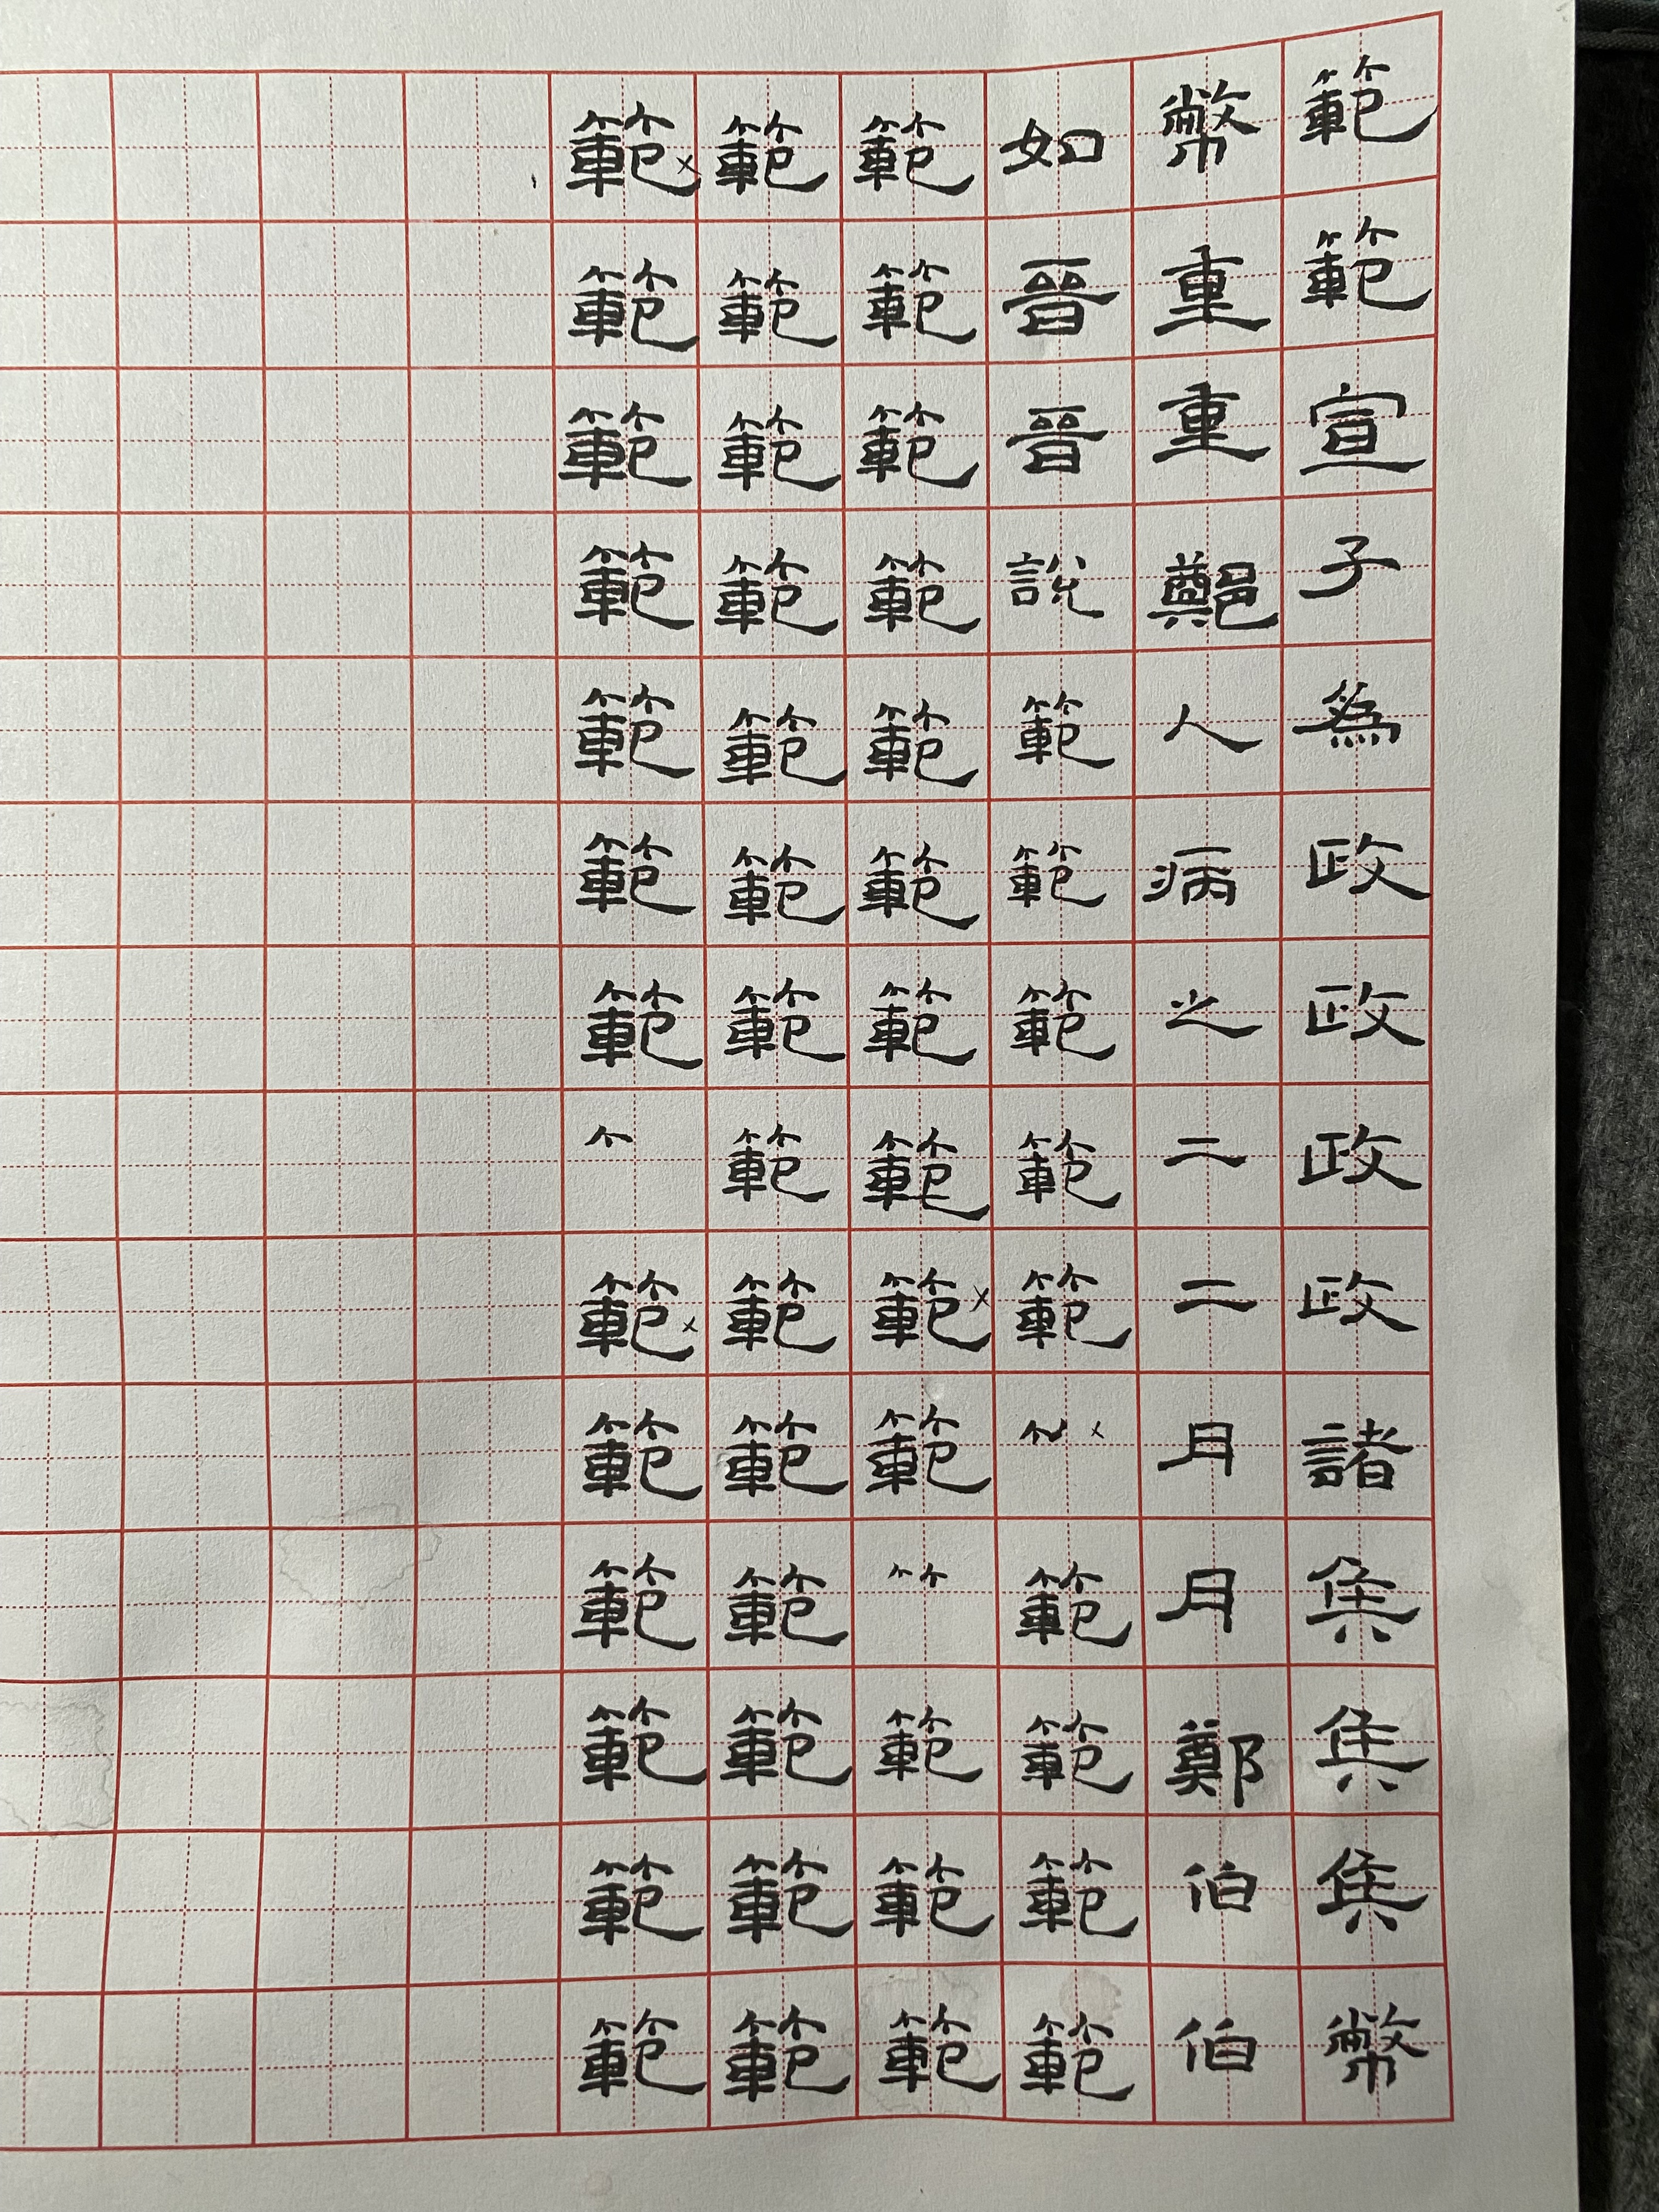 範範宣子為政政政政諸矦矦矦幣
幣重重鄭人病之二二月月鄭伯伯
如晉晉說範範範範範範範範範
範範範範範範範範範範範範範
範範範範範範範範範範範範範範
範範範範範範範範範範範範範